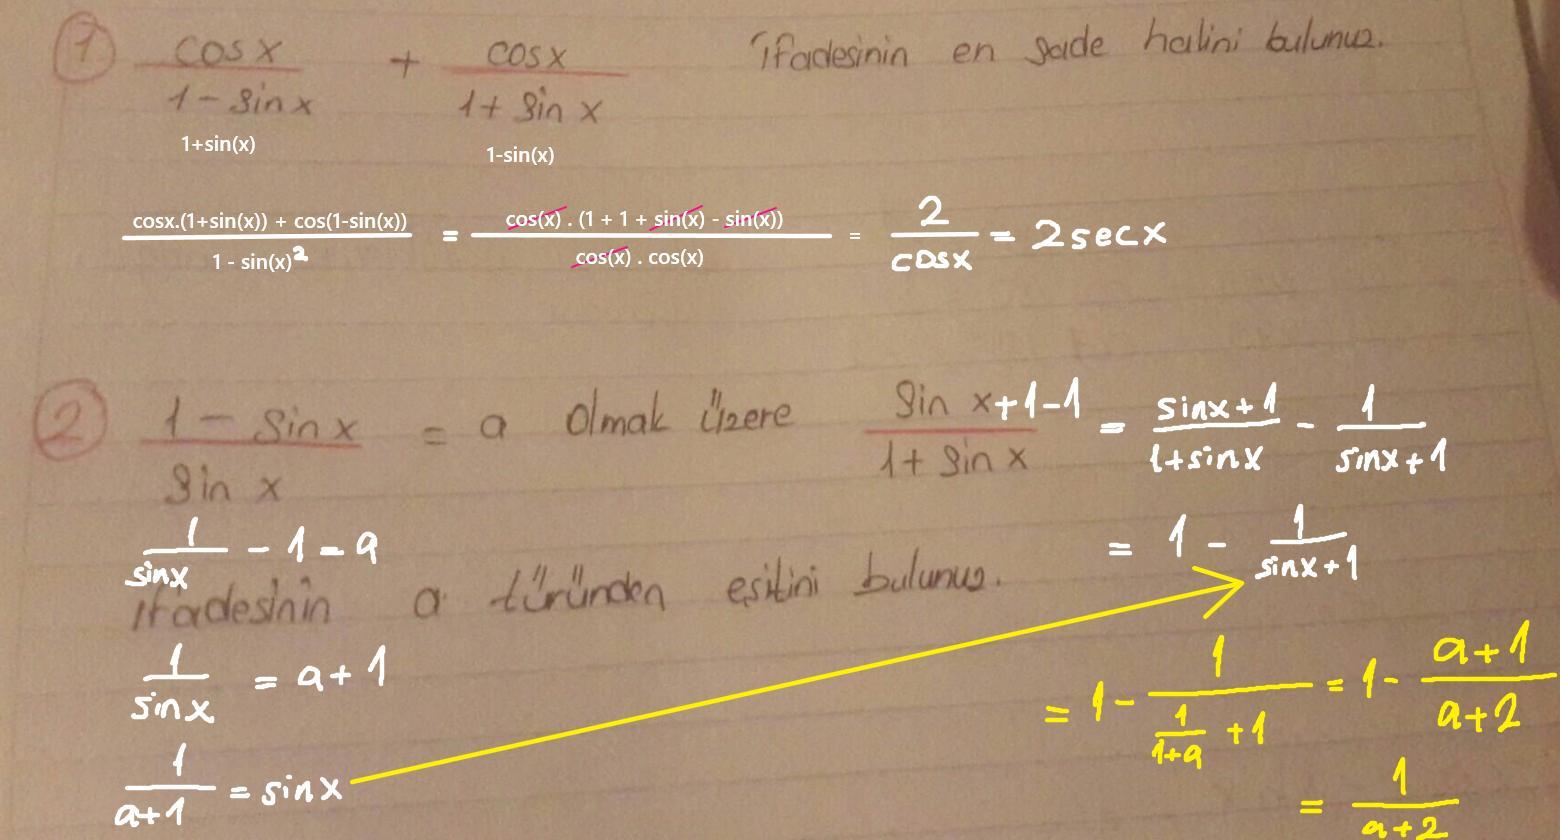 1 cosx / 1 - sinx + cosx / 1 + sin x ifadesinin en sade halini bulunuz.
1+sin(x) 1-sin(x)
cosx.(1+sin(x)) + cos(1-sin(x)) / 1 - sin(x)² = cos(x) . (1 + 1 + sin(x) - sin(x)) / cos(x) . cos(x) = 2 / cosx = 2secx
2 1 - sin x / sin x = a olmak üzere sin x+1-1 / 1+ sin x = sinx+1 / 1+sinx - 1 / sinx+1
1 / sinx - 1 = a
= 1 - 1 / sinx+1
ifadesinin a türünden eşitini bulunuz.
1 / sinx = a+1
= 1 - 1 / 1/1+a +1 = 1 - a+1 / a+2
1 / a+1 = sinx
= 1 / a+2